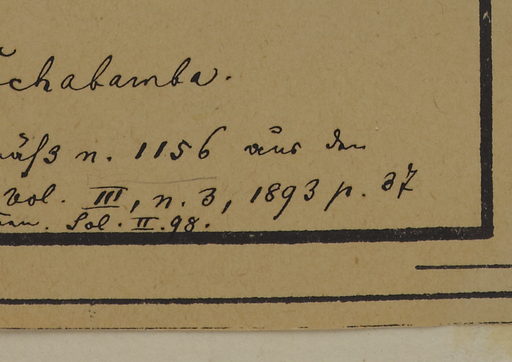 chabamba.
n. 1156 aus den
vol. III, n. 3, 1893 p. 37
Sol. II. 98.